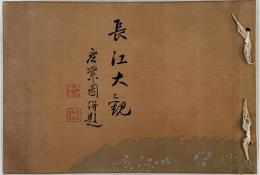 長江大觀
唐業國併題